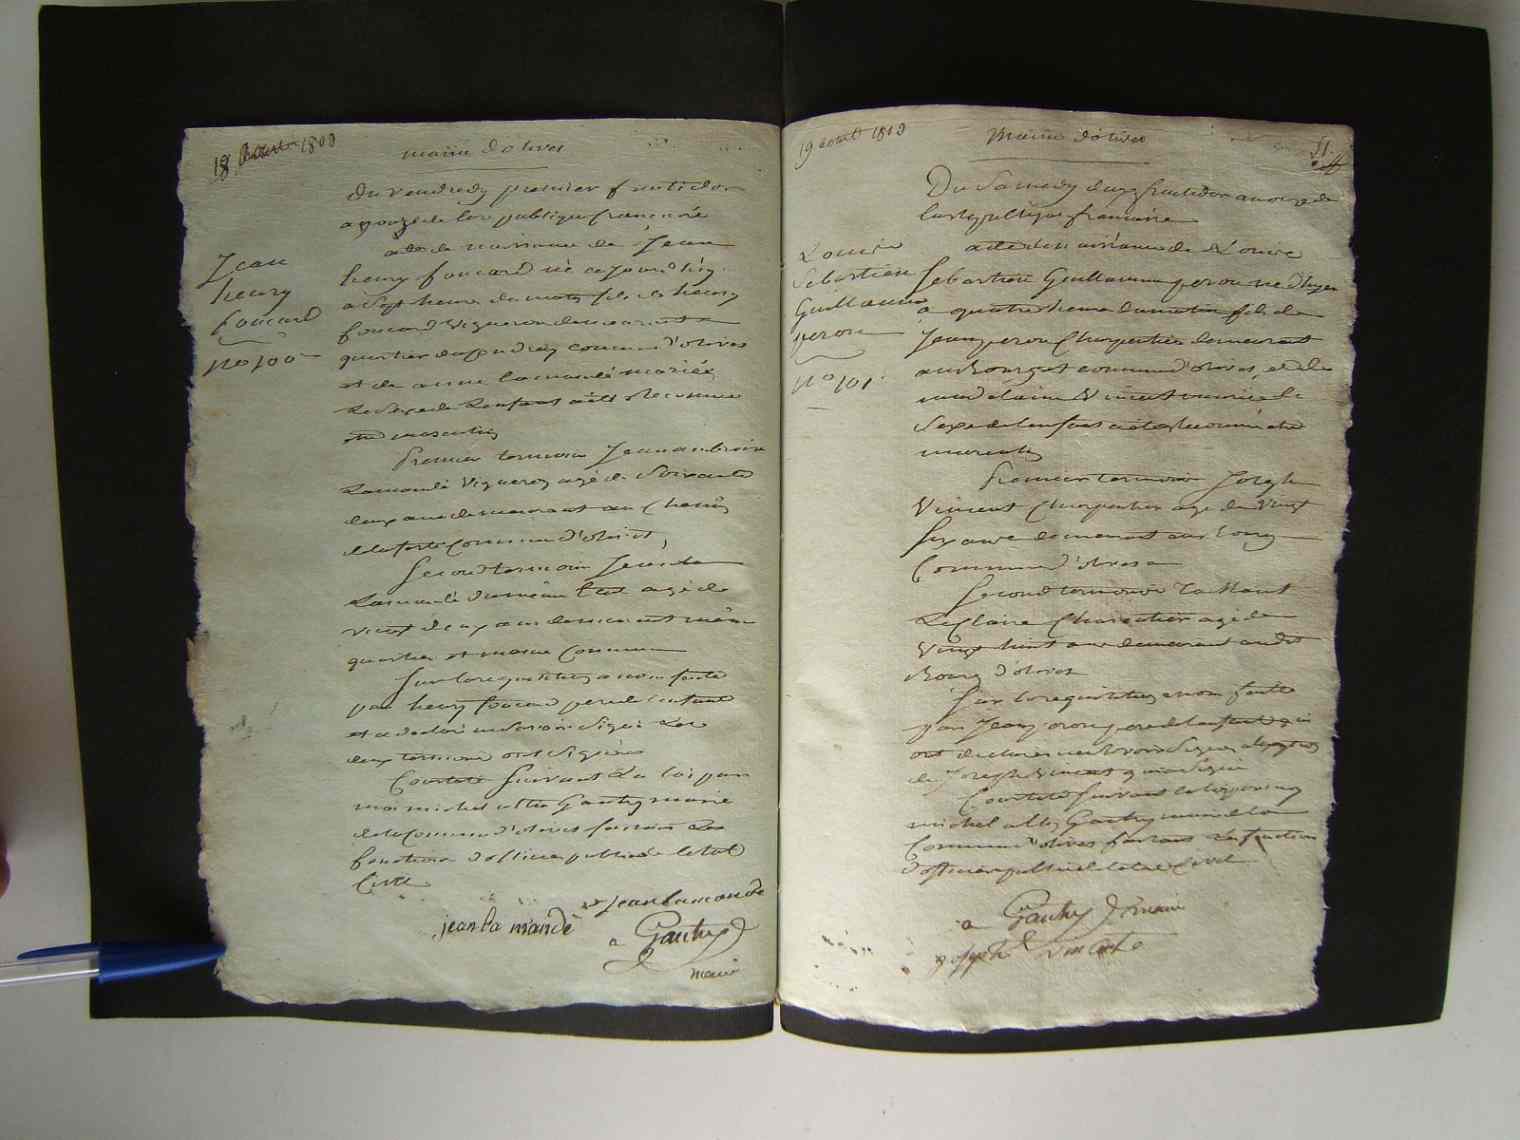 18 1803
mairie d'olivet
du vendredy premier fructidor
an onze de la republique francaise
acte de naissance de Jean
henry foucard né ce jourd'huy
a sept heures du matin fils de henry
foucard vigneron demeurant
quartier commune d'olivet
et de anne lamandé mariée
le sexe de l'enfant a été reconnu
etre masculin
Premier termoin Jean ambroise
Lamandé vigneron agé de soixante
deux ans demeurant au
commune d'olivet
Second termoin Jean
Lamandé du même état agé de
vingt deux ans demeurant même
quartier et même commune
Sur la requisition a nous faite
par henry foucard pere de l'enfant
et a declaré ne savoir signer les
deux termoins ont signés
Constaté suivant la loi par
moi michel Gauthy maire
de la commune d'olivet faisant les
fonctions d'officier public de l'etat
Civil
Jean lamandé
jean la mandé
Gauthy
maire
Jean
henry
foucard
no 100
19 aout 1803
Mairie d'olivet
51
Du Samedy deux fructidor an onze de
la republique francaise
acte de naissance de Louis
Sebastien Guillaume peron né d'hyer
a quatre heures du matin fils de
Jean peron Charpentier demeurant
au Bourg et commune d'olivet, et de
madelaine Vincent mariée le
sexe de l'enfant a été reconnu etre
masculin
Premier termoin Joseph
Vincent Charpentier agé de vingt
six ans demeurant au bourg
Commune d'olivet
Second termoin
Leclaire Charpentier agé de
vingt huit ans demeurant audit
Bourg d'olivet
Sur la requisition a nous faitte
par Jean peron pere de l'enfant qui
ont declarer ne savoir signer
de Joseph Vincent qui a signé
Constaté suivant la loi par moy
michel Gauthy maire de la
Commune d'olivet faisant les fonctions
d'officier public de l'etat Civil
Gauthy maire
joseph
Louis
Sebastien
Guillaume
peron
no 101